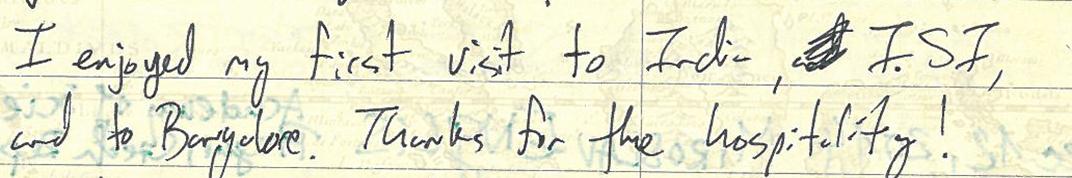 I enjoyed my first visit to India, I.SI,
and to Bangalore. Thanks for the hospitality!